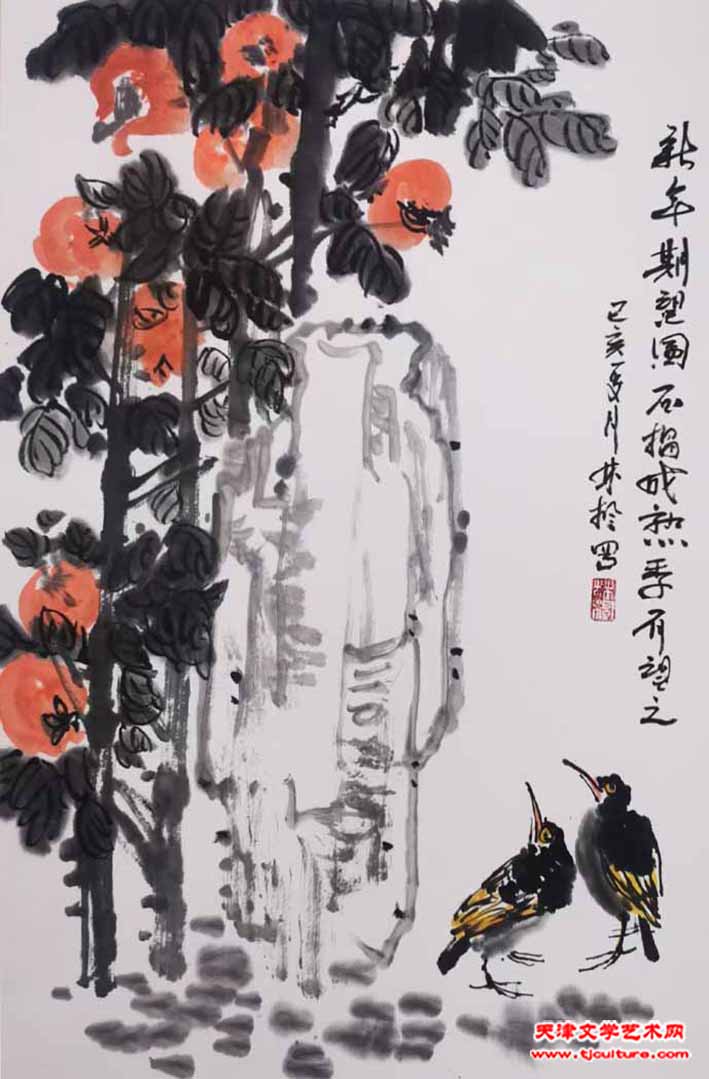 新年期望圖石榴成熟季有望之
己亥夏月林
天津文学艺术网
www.tjculture.com